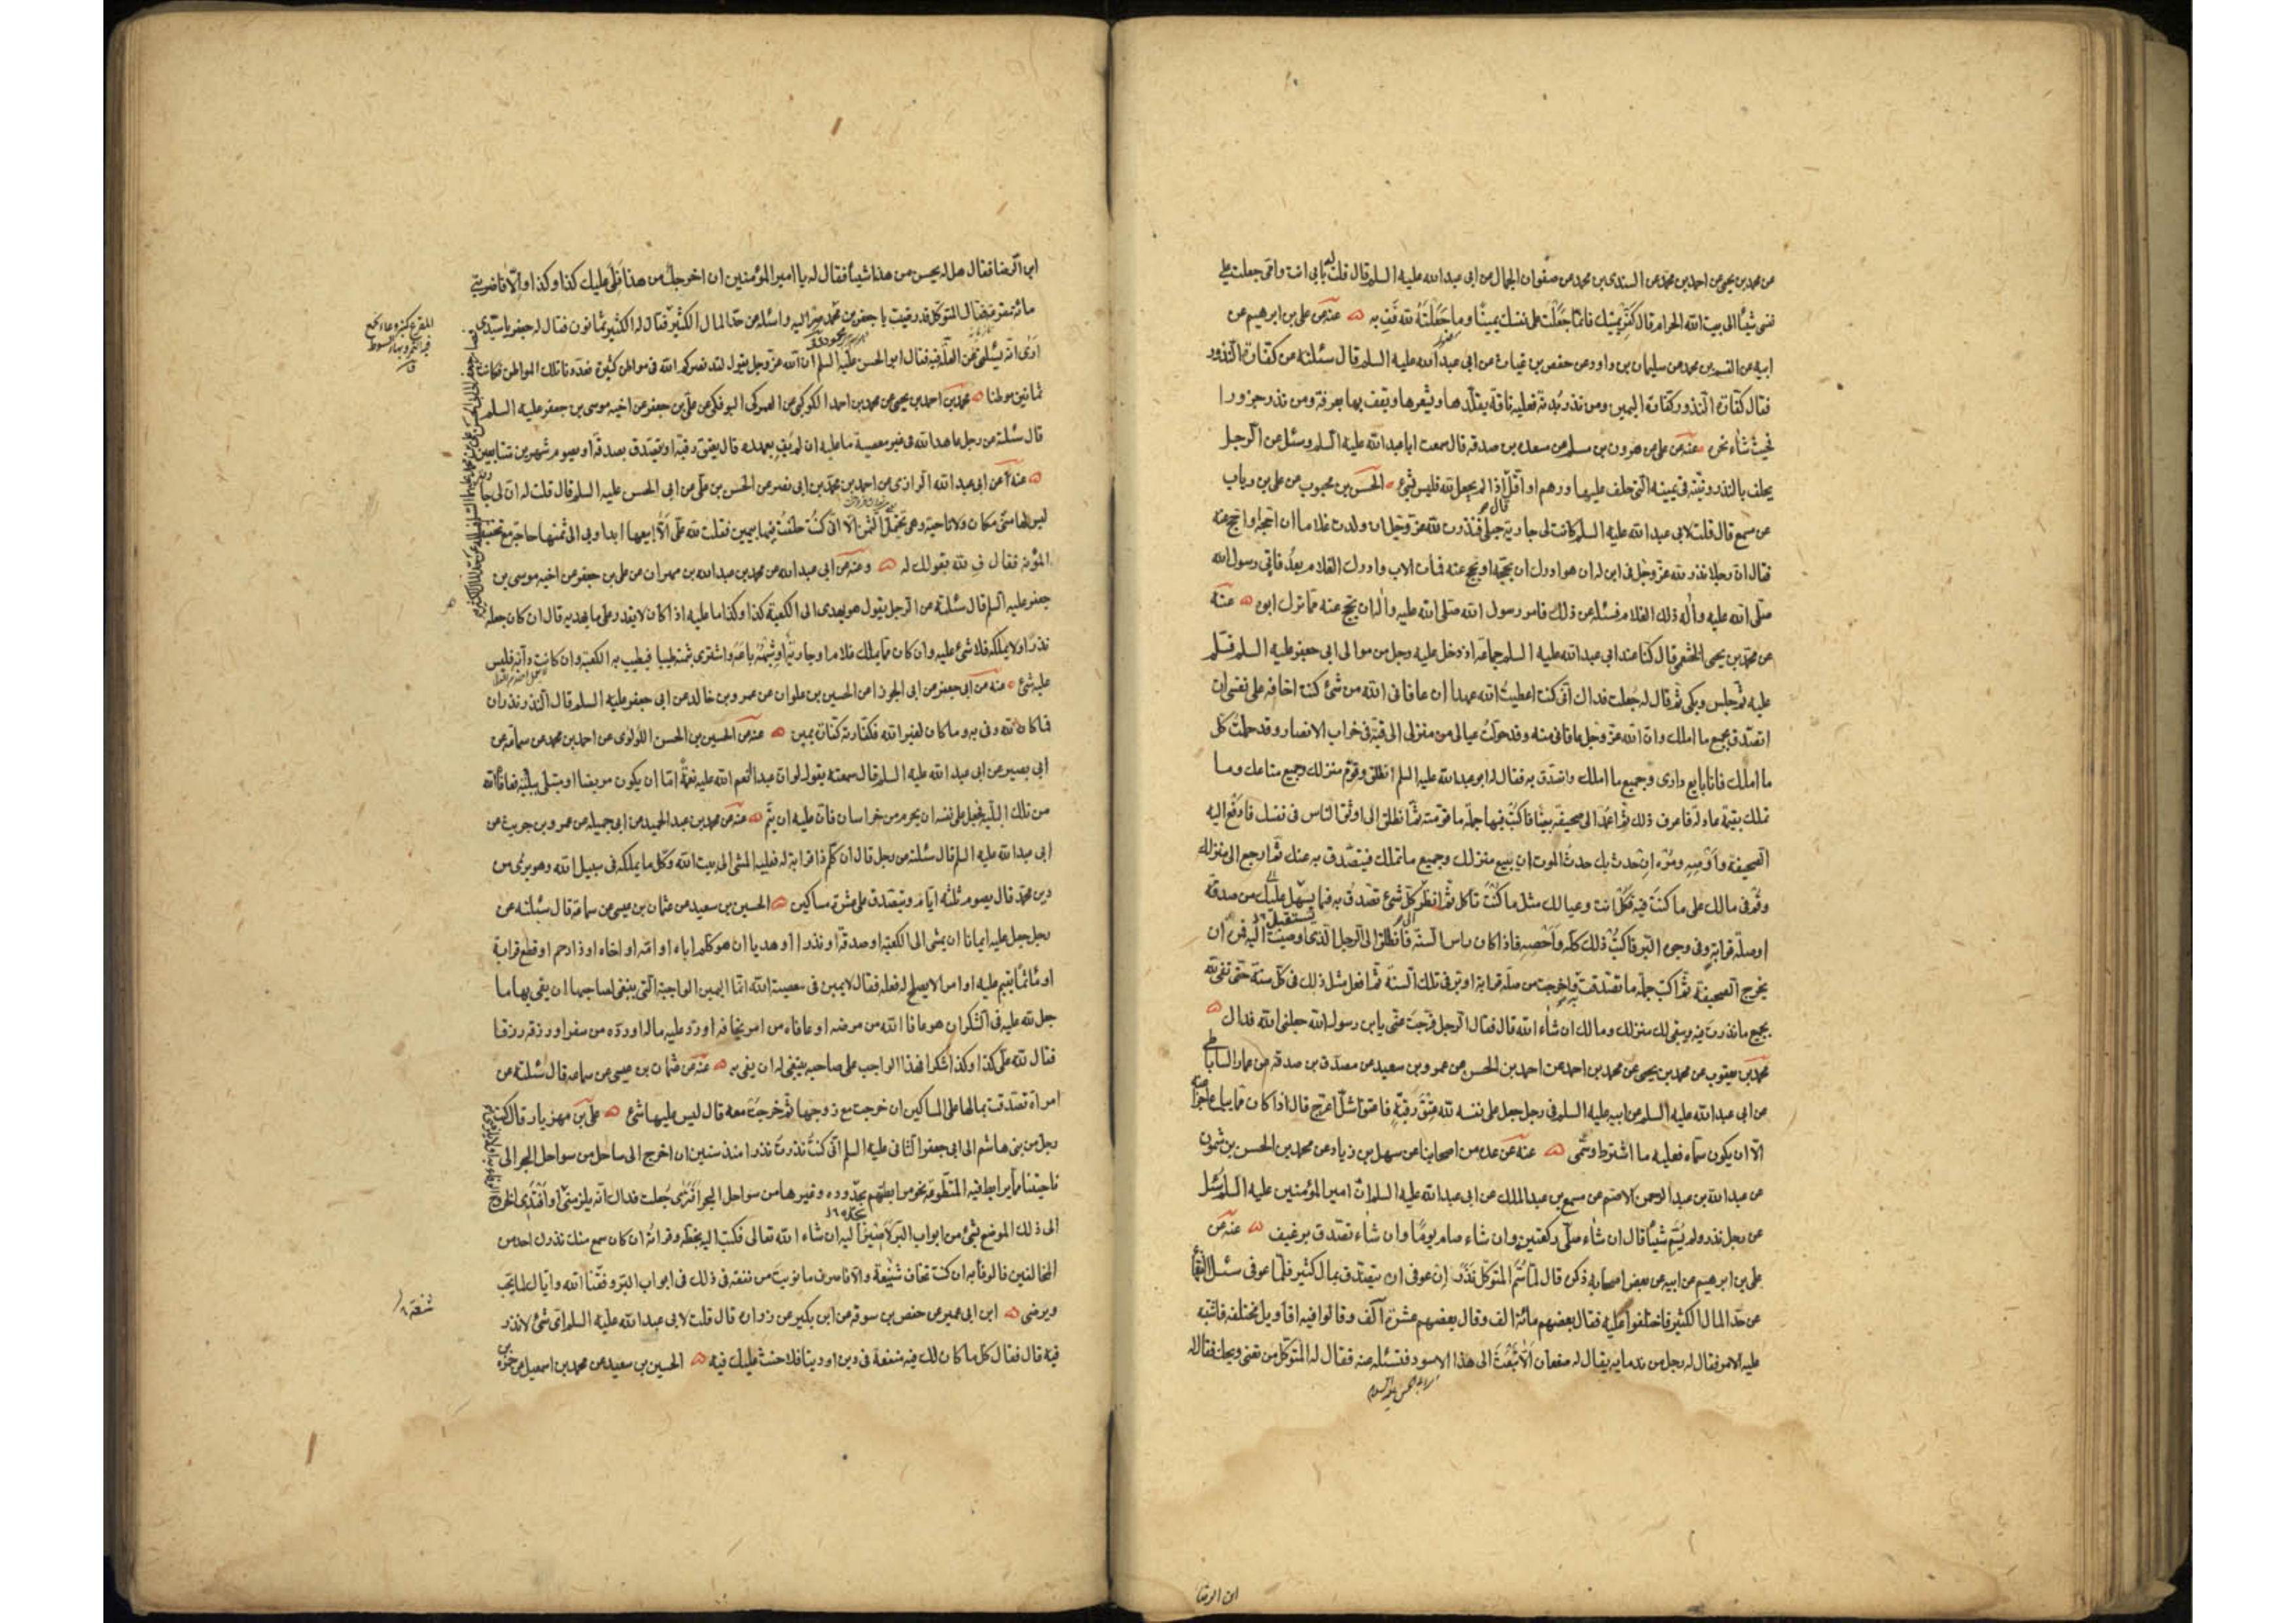 عن محمد بن يحيى عن احمد بن محمد عن السندى بن محمد عن صفوان الجمال عن ابى عبدالله عليه السلم قال قلت له بابى انت وامى جعلت على
نفسى شيئا الى بيت الله الحرام قال كفر يمينك فانما جعلت على نفسك يمينا وما جعلته لله فف به عنه عن على بن ابرهيم عن
ابيه عن القسم بن محمد عن سليمان بن داود عن حفص بن غياث عن ابى عبدالله عليه السلم قال سئلته عن كفارة النذور
فقال كفارة النذور كفارة اليمين ومن نذر بدنة فعليه ناقة يقلدها ويشعرها ويقف بها بعرفة ومن نذر جزورا
فحيث شاء نحره عنه عن على عن هرون بن مسلم عن مسعدة بن صدقه قال سمعت ابا عبدالله عليه السلم وسئل عن الرجل
يحلف بالنذر ونيته فى يمينه التى حلف عليها درهم او اقل قال اذا لم يجعل لله فليس بشئ الحسن بن محبوب عن على بن رياب
عن مسمع قال قلت لابى عبدالله عليه السلم كانت لى جارية حبلى فنذرت لله عز وجل ان ولدت غلاما ان احجه او احج عنه
فقال ان رجلا نذر لله عز وجل فى ابن له ان هو ادرك ان يحجه او يحج عنه فمات الاب وادرك الغلام بعد فاتى رسول الله
صلى الله عليه وآله ذلك الغلام فسئله عن ذلك فامر رسول الله صلى الله عليه وآله ان يحج عنه مما ترك ابوه عنه
عن محمد بن يحيى الخثعمى قال كنا عند ابى عبدالله عليه السلم جماعة اذ دخل عليه رجل من موالى ابى جعفر عليه السلم فسلم
عليه ثم جلس وبكى ثم قال له جعلت فداك انى كنت اعطيت الله عهدا ان عافانى الله من شئ كنت اخافه على نفسى ان
اتصدق بجميع ما املك وان الله عز وجل عافانى منه وقد حولت عيالى من منزلى الى قبة فى خراب الانصار وقد حملت كل
ما املك فانا بايع دارى وجميع ما املك واتصدق به فقال له ابو عبدالله عليه السلم انطلق وقوم منزلك وجميع متاعك وما
تملك بقيمة عادلة فاعرف ذلك ثم اعمد الى صحيفة بيضا فاكتب فيها جملة ما قومته ثم انطلق الى اوثق الناس فى نفسك فادفع اليه
الصحيفة واوصه ومره ان حدث بك حدث الموت ان يبيع منزلك وجميع ما تملك فيتصدق به عنك ثم ارجع الى منزلك
وقم فى مالك على ما كنت فيه فكل انت وعيالك مثل ما كنت تأكل ثم انظر كل شئ تصدق به فما يسهل عليك من صدقة
او صلة قرابة وفى وجوه البر فاكتب ذلك كله واحصه فاذا كان راس السنة فانطلق الى الرجل الذى اوصيت اليه فمره ان
يخرج الصحيفة ثم اكتب جملة ما تصدقت به واخرجت من صلة قرابة او بر فى تلك السنة ثم افعل مثل ذلك فى كل سنة حتى تفى لله
بجميع ما نذرت فيه ويبقى لك منزلك ومالك ان شاء الله قال فقال الرجل فرجت عنى يابن رسول الله جعلنى الله فداك
محمد بن يعقوب عن محمد بن يحيى عن محمد بن احمد عن احمد بن الحسن عن عمرو بن سعيد عن مصدق بن صدقة عن عمار الساباطى
عن ابى عبدالله عليه السلم عن ابيه عليه السلم فى رجل جعل على نفسه لله عتق رقبة فاعتق اشل اعرج قال اذا كان مما يباع اجزا عنه
الا ان يكون سماه فعليه ما اشترط وسمى عنه عن عدة من اصحابنا عن سهل بن زياد عن محمد بن الحسن بن شمون
عن عبدالله بن عبدالرحمن الاصم عن مسمع بن عبدالملك عن ابى عبدالله عليه السلم ان اميرالمؤمنين عليه السلم سئل
عن رجل نذر ولم يسم شيئا قال ان شاء صلى ركعتين وان شاء صام يوما وان شاء تصدق برغيف عنه عن
على بن ابرهيم عن ابيه عن بعض اصحابه ذكره قال لما سم المتوكل نذر ان عوفى ان يتصدق بمال كثير فلما عوفى سئل الفقهاء
عن حد المال الكثير فاختلفوا عليه فقال بعضهم مائة الف وقال بعضهم عشرة آلف وقالوا فيه اقاويل مختلفة فاشتبه
عليه الامر فقال له رجل من ندمايه يقال له صفعان الا تبعث الى هذا الاسود فتسئله عنه فقال له المتوكل من تعنى ويحك فقال له
ابن الرضا
ابن الرضا فقال هل له يحسن من هذا شيئا فقال له يا اميرالمؤمنين ان اخرجك من هذا فلى عليك كذا وكذا والا فاضربنى
مائة مقرعة فقال المتوكل قد رضيت يا جعفر بن محمود صر اليه واسئله عن حد المال الكثير فقال له الكثير ثمانون فقال له جعفر يا سيدى
ارى انه يسئلنى عن العلة فيه فقال ابو الحسن عليه السلم ان الله عز وجل يقول لقد نصركم الله فى مواطن كثيرة فعددنا تلك المواطن فكانت
ثمانين موطنا محمد بن احمد بن يحيى عن محمد بن احمد الكوكبى عن العمركى البوفكى عن على بن جعفر عن اخيه موسى بن جعفر عليه السلم
قال سئلته عن رجل عاهد الله فى غير معصية ما عليه ان لم يف بعهده قال يعتق رقبة او يتصدق بصدقة او يصوم شهرين متتابعين
عنه عن ابى عبدالله الرازى عن احمد بن محمد بن ابى نصر عن الحسن بن على عن ابى الحسن عليه السلم قال قلت له ان لى جارية
ليس لها منى مكان ولا ناحية وهى تحتمل الثمن الا انى كنت حلفت فيها بيمين فقلت لله على الا ابيعها ابدا وبى الى ثمنها حاجة مع تخفيف
المؤنة فقال ف لله بقولك له وعنه عن ابى عبدالله عن محمد بن عبدالله بن مهران عن على بن جعفر عن اخيه موسى بن
جعفر عليه السلم قال سئلته عن الرجل يقول هو يهدى الى الكعبة كذا وكذا ما عليه اذا كان لا يقدر على ما يهديه قال ان كان جعله
نذرا ولا يملكه فلا شئ عليه وان كان مما يملك غلاما او جارية او شبهه باعه واشترى بثمنه طيبا فيطيب به الكعبة وان كانت دابة فليس
عليه شئ عنه عن ابى جعفر عن ابى الجوزا عن الحسين بن علوان عن عمرو بن خالد عن ابى جعفر عليه السلم قال النذر نذران
فما كان لله وفى به وما كان لغير الله فكفارته كفارة يمين عنه عن الحسين بن الحسن اللؤلؤى عن احمد بن محمد عن سماعة عن
ابى بصير عن ابى عبدالله عليه السلم قال سمعته يقول لو ان عبدا انعم الله عليه نعمة اما ان يكون مريضا او مبتلى ببلية فعافاه الله
من تلك البلية فجعل على نفسه ان يحرم من خراسان فان عليه ان يتم عنه عن محمد بن عبدالحميد عن ابى جميله عن عمرو بن حريث عن
ابى عبدالله عليه السلم قال سئلته عن رجل قال ان كلم ذا قرابة له فعليه المشى الى بيت الله وكل ما يملكه فى سبيل الله وهو برئ من
دين محمد قال يصوم ثلثة ايام ويتصدق على عشرة مساكين الحسين بن سعيد عن عثمان بن عيسى عن سماعة قال سئلته عن
رجل جعل عليه ايمانا ان يمشى الى الكعبة او صدقة او نذرا او هديا ان هو كلم اباه او امه او اخاه او ذا رحم او قطع قرابة
او مأثما يقيم عليه او امر لا يصلح له فعله فقال لا يمين فى معصية الله انما اليمين الواجبة التى ينبغى لصاحبها ان يفى بها ما
جعل لله عليه فى الشكر ان هو عافاه الله من مرضه او عافاه من امر يخافه او رد عليه ماله او رده من سفر او رزقه رزقا
فقال لله على كذا وكذا شكرا فهذا الواجب على صاحبه ينبغى له ان يفى به عنه عن عثمان بن عيسى عن سماعه قال سئلته عن
امراة تصدقت بمالها على المساكين ان خرجت مع زوجها ثم خرجت معه قال ليس عليها شئ على بن مهزيار قال كتب
رجل من بنى هاشم الى ابى جعفر الثانى عليه السلم انى كنت نذرت نذرا منذ سنين ان اخرج الى ساحل من سواحل البحر الى
ناحيتنا مما يرابط فيه المتطوعة نحو مرابطتهم بجدة وغيرها من سواحل البحر افترى جعلت فداك انه يلزمنى او افتدى الخروج
الى ذلك الموضع بشئ من ابواب البر لاصير اليه ان شاء الله تعالى فكتب اليه بخطه وقراته ان كان سمع منك نذرك احد من
المخالفين فالوفا به ان كنت تخاف شنيعة والا فاصرف ما نويت من نفقة فى ذلك فى ابواب البر وفقنا الله واياك لما يحب
ويرضى ابن ابى عمير عن حفص بن سوقة عن ابن بكير عن زرارة قال قلت لابى عبدالله عليه السلم اى شئ لا نذر
فيه قال فقال كل ما كان لك فيه منفعة فى دين او دنيا فلا حنث عليك فيه الحسين بن سعيد عن محمد بن اسمعيل عن حمزة